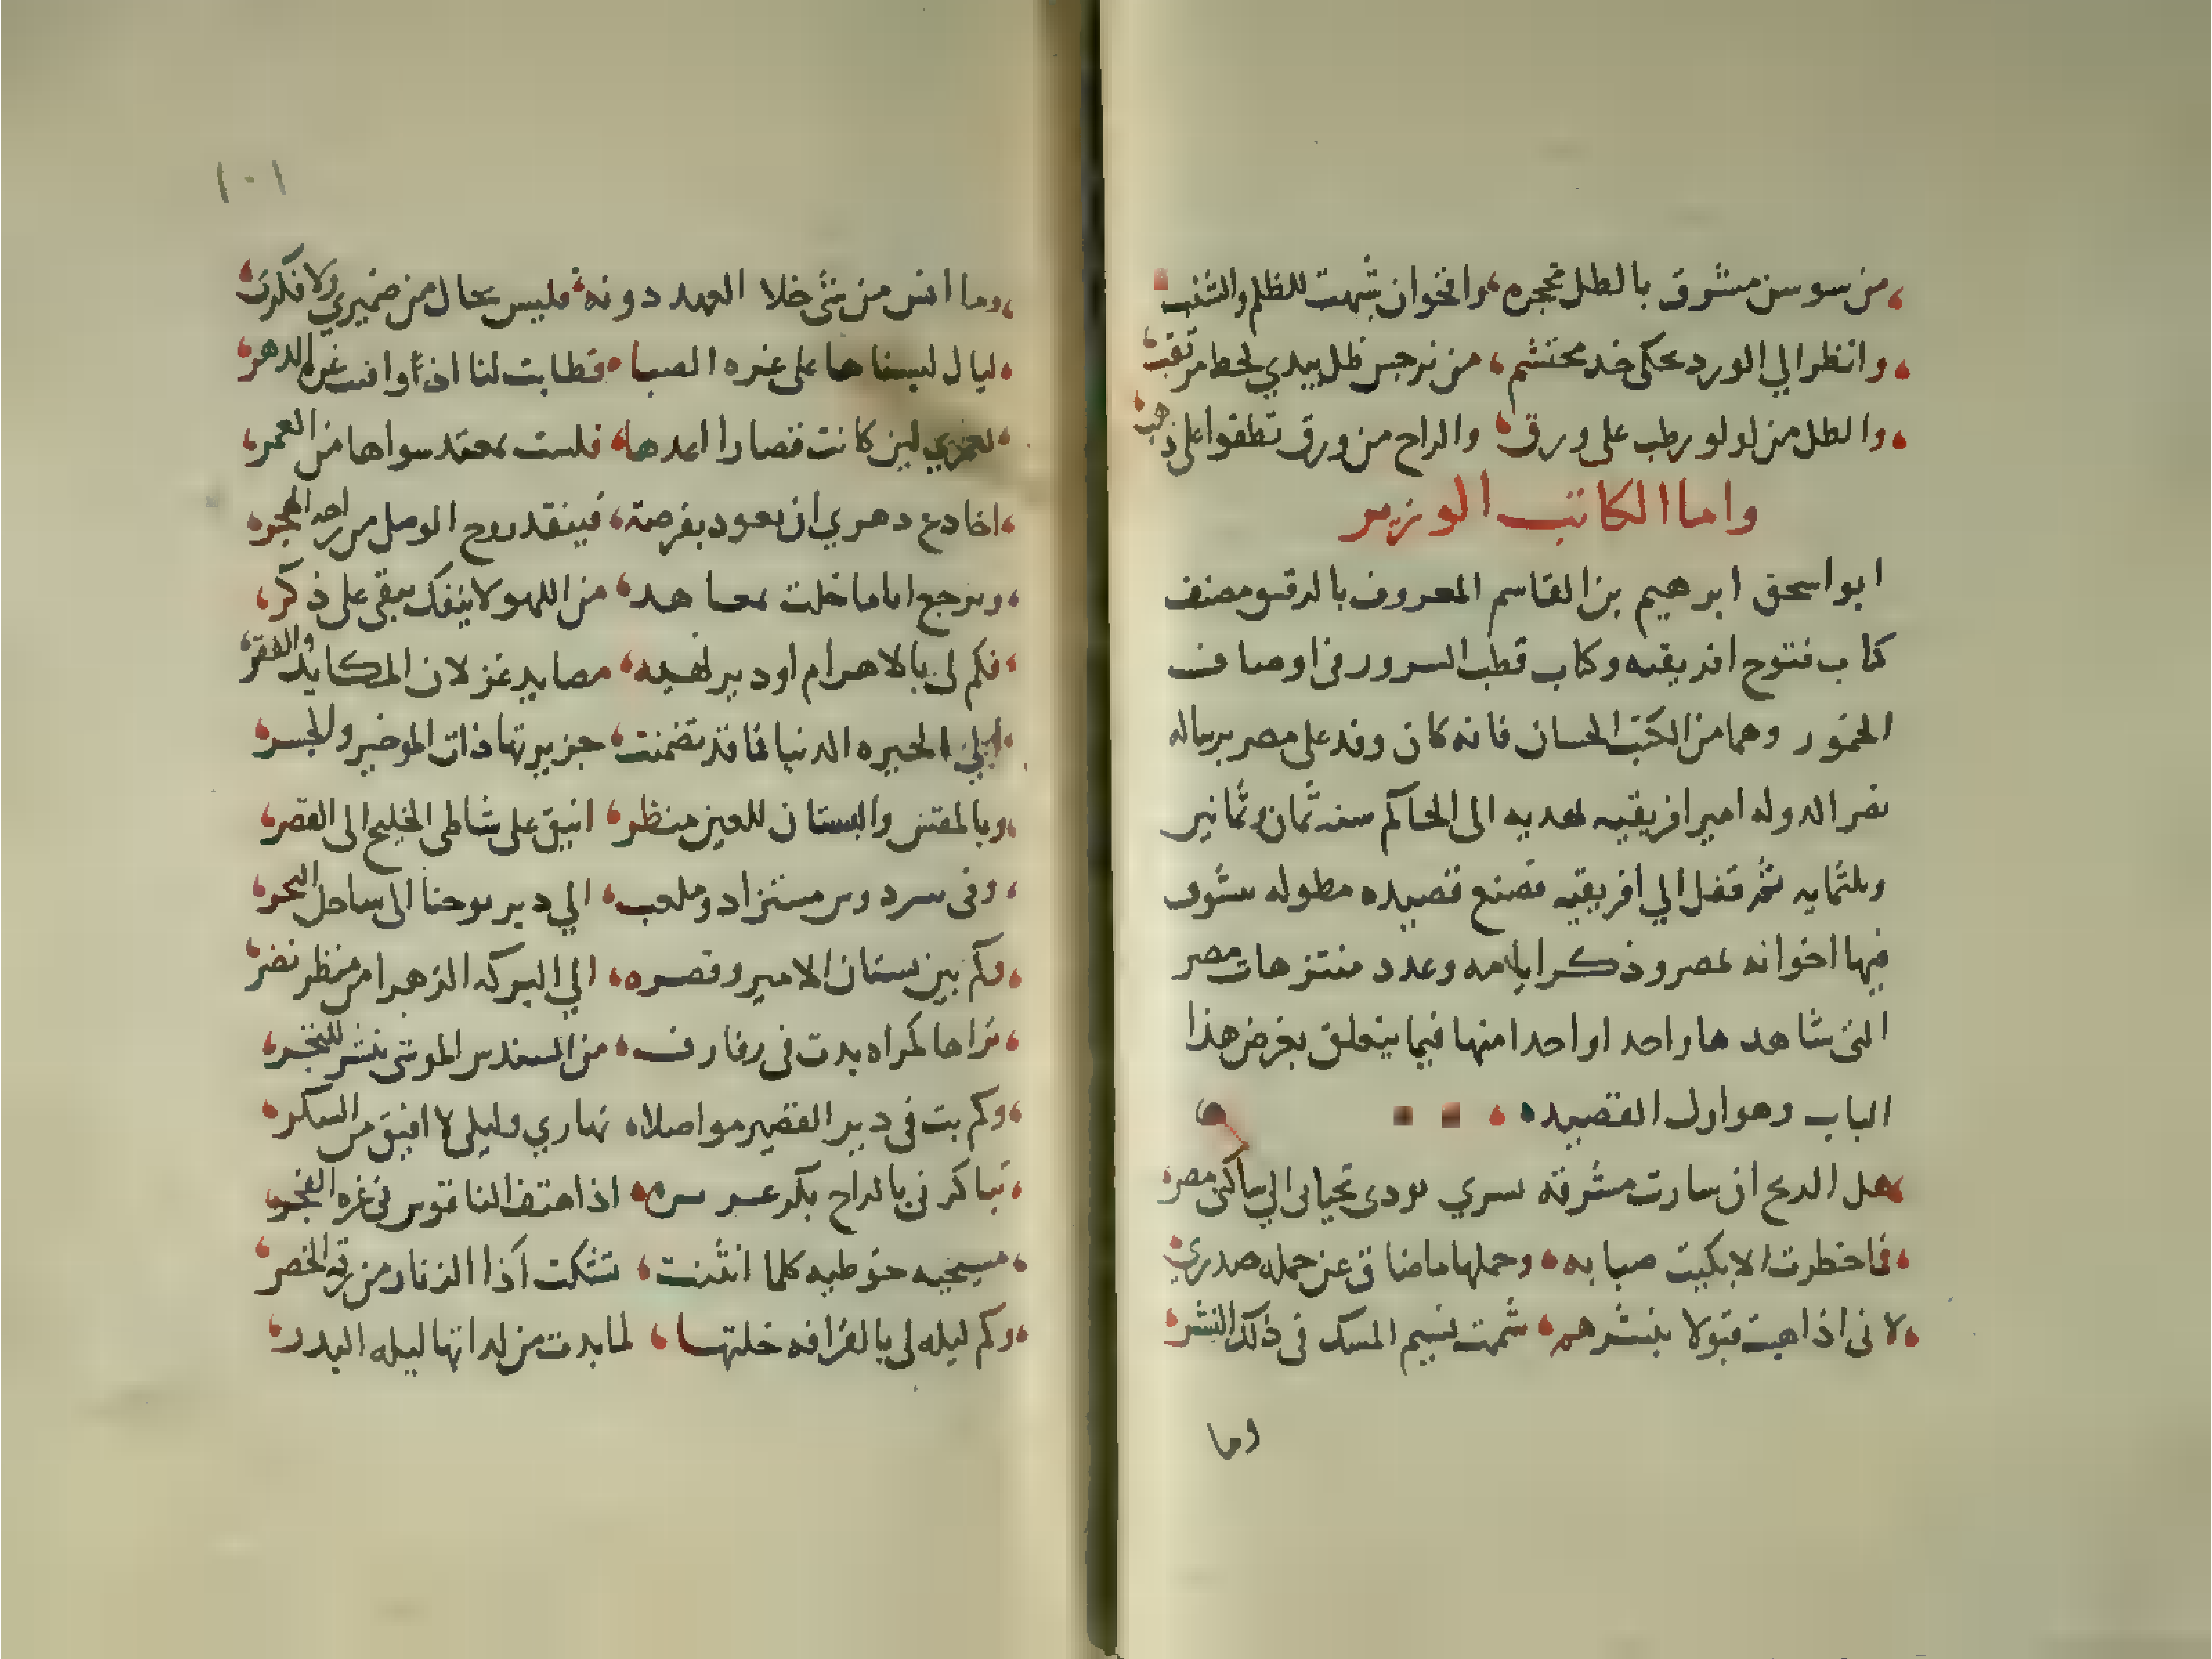 من سوسن مشرق بالطل محجره واقحوان شهت للظلم والشنب
وانظر الي الورد يحكى خد محتشم من نرجس ظل يبدي لحظ مرتقب
والطل من لولو رطب على ورق والراح من ورق تطفوا على ذهب
واما الكاتب الوزير
ابو اسحق ابرهيم بن القاسم المعروف بالرقيق مصنف
كتاب فتوح افريقيه وكتاب قطب السرور فى اوصاف
الخمور وهما من الكتب الحسان فانه كان وفد على مصر برساله
نصر الدوله امير افريقيه بهديه الى الحاكم سنه ثمان وثمانين
وثلثمايه ثم قفل الي افريقيه فصنع قصيده مطوله يشوق
فيها اخوانه بمصر وذكر ايامه وعدد منتزهات مصر
التى شاهدها واحدا واحدا منها فيما يتعلق بغرض هذا
الباب وهو اول القصيده
هل الريح ان سارت مشرقه تسري تودى تحياتى الي ساكنى مصر
فما خطرت الا بكيت صبابه وحملها ما ضاق عن حمله صدري
لانى اذا هبت قبولا بنشرهم شممت نسيم المسك فى ذلك النشر
وما
١٠١
وما انس من شى خلا العهد دونه فليس بحال من ضميري ولا فكري
ليال لبسناها على غره الصبا فطابت لنا اذ وافت غره الدهر
لعمري لين كانت قصارا اعدها فلست بمعتد سواها من العمر
اخادع دهري ان يعود بفرصة فينقد روح الوصل من راحه الهجر
وترجع اياما خلت بمعاهد من اللهو لا ينفك يبقى على ذكر
فكم لى بالاهرام او دير نهيه مصايد غزلان المكايد والقفر
الى الجيزه الدنيا فما قد تضمنت جزيرتها ذات المواخير والجسر
وبالمقس والبستان للعين منظر انيق على شاطى الخليج الى القصر
وفى سردوس مستزاد وملعب الي دير يوحنا الى ساحل البحر
وكم بين بستان الامير وقصره الي البركه الزهرا من منظر نضر
تراها كمراه بدت فى رفارف من السندس الموشى ينشر للتجر
وكم بت فى دير القصير مواصلا نهاري وليلى لا افيق من السكر
تباكرنى بالراح بكر غريره اذا هتف الناقوس فى غره الفجر
مسيحيه خوطيه كلما انثنت تشكت اذا الزنار من رقه الخصر
وكم ليله لى بالقرافه خلتها لما بدت من لداتها ليله البدر